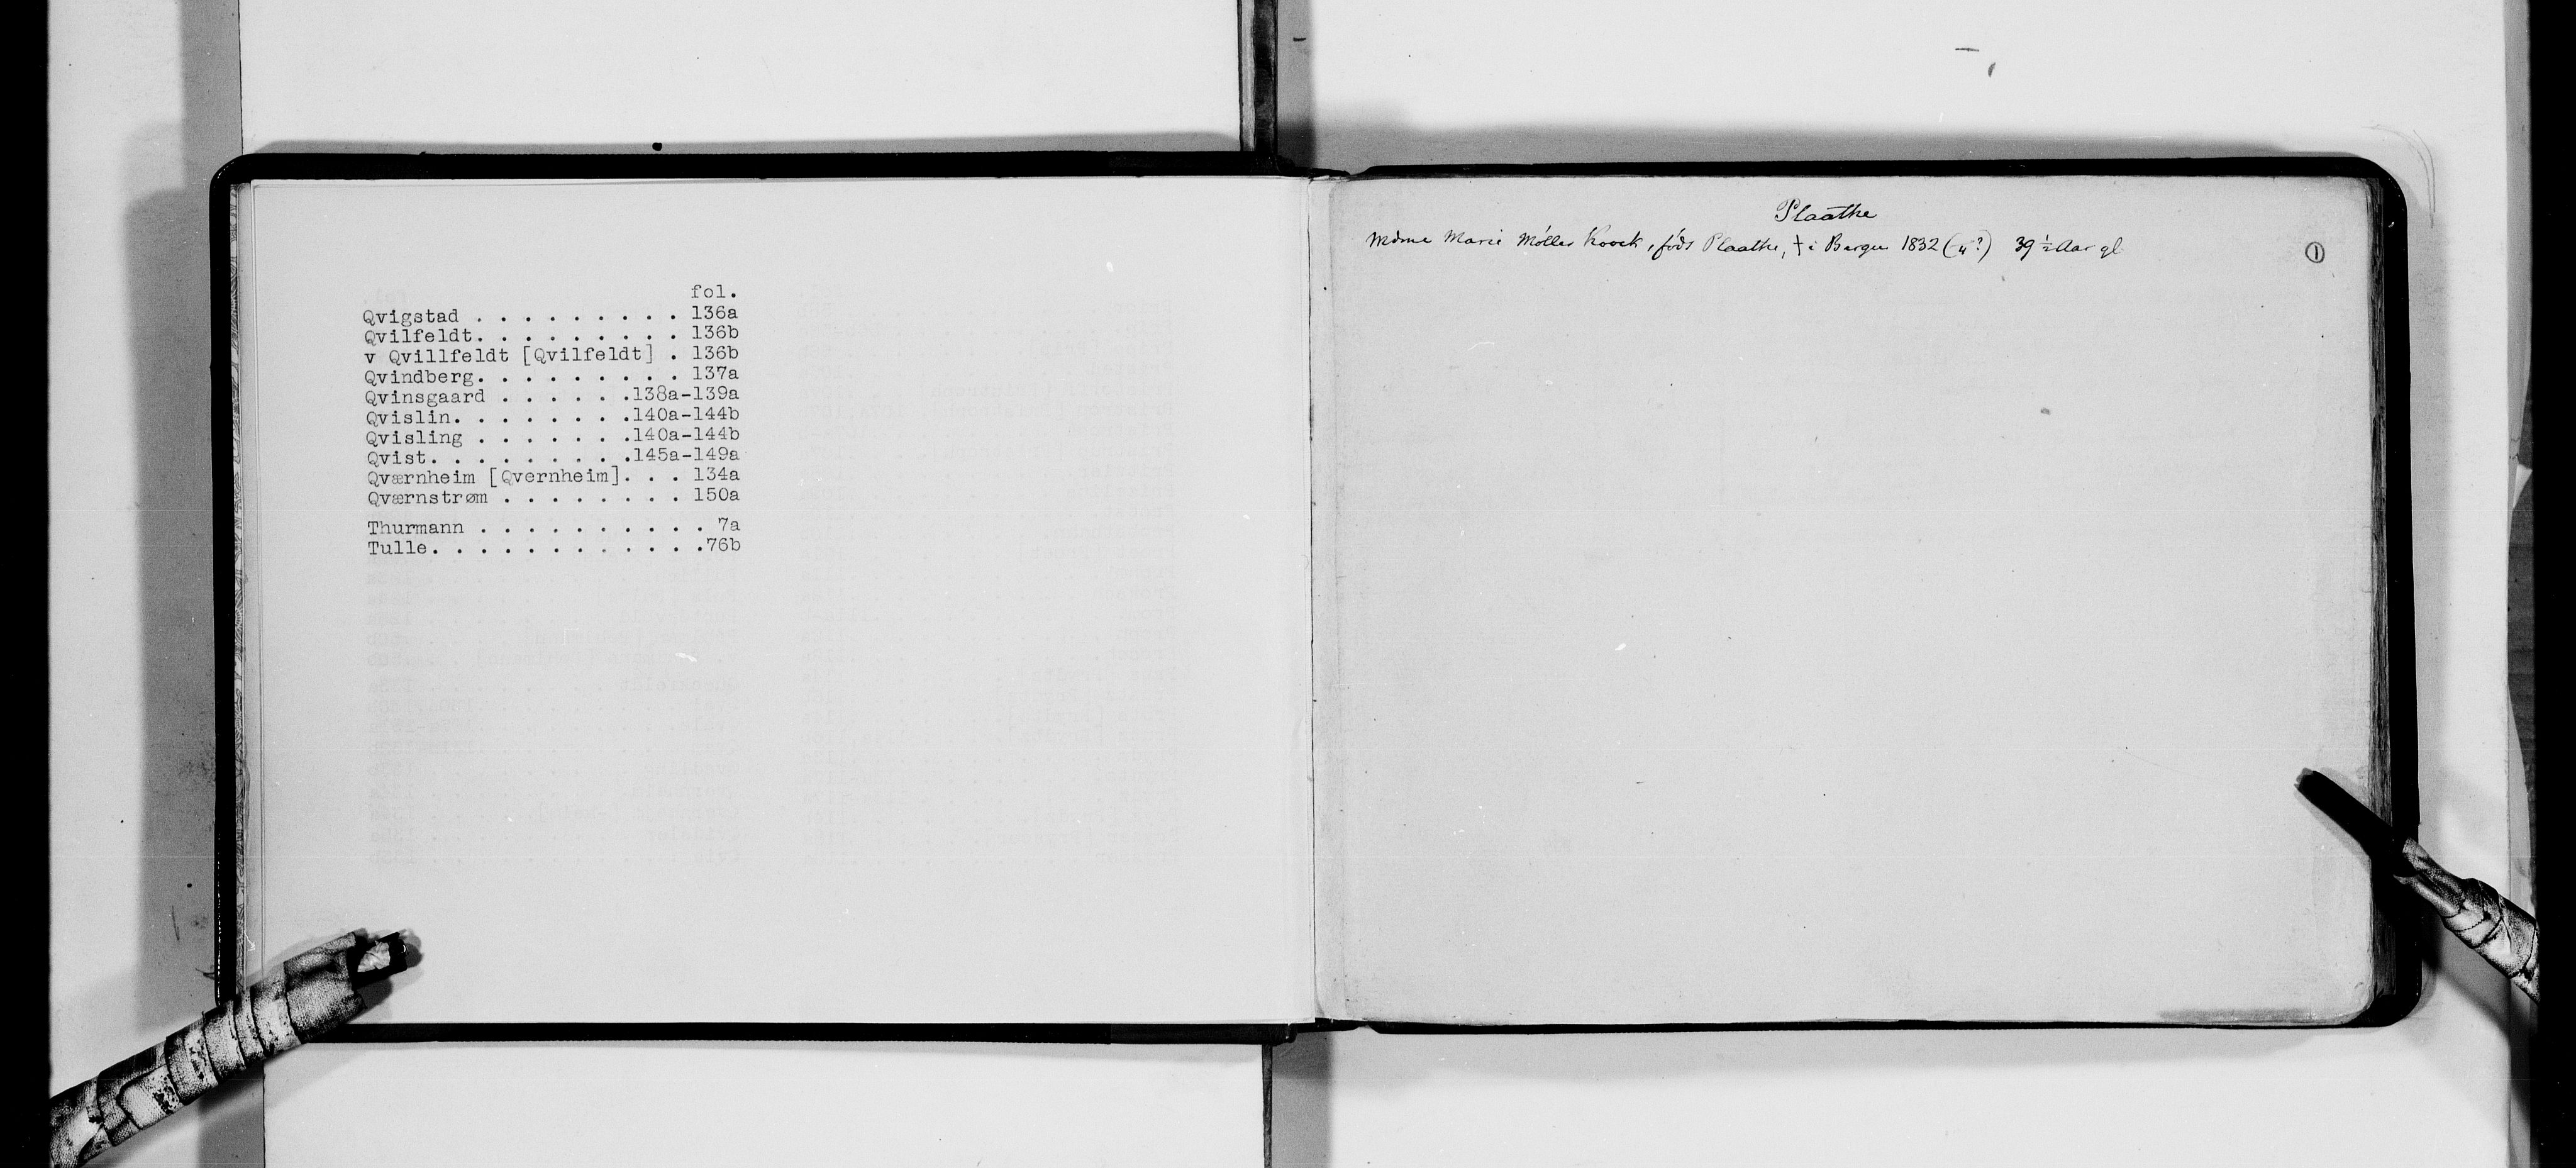 fol.
Qvigstad . . . . . . . . . 136a
Qvilfeldt. . . . . . . . . 136b
v Qvillfeldt [Qvilfeldt] . 136b
Qvindberg. . . . . . . . . 137a
Qvinsgaard . . . . . .138a-139a
Qvislin. . . . . . . .140a-144b
Qvisling . . . . . . .140a-144b
Qvist. . . . . . . . .145a-149a
Qværnheim [Qvernheim]. . . 134a
Qværnstrøm . . . . . . . . 150a
Thurmann . . . . . . . . . . 7a
Tulle. . . . . . . . . . . .76b
Plaathe
Mdme Marie Møller Koock, føds Plaathe, † i Bergen 1832 39 ½ Aar gl
1